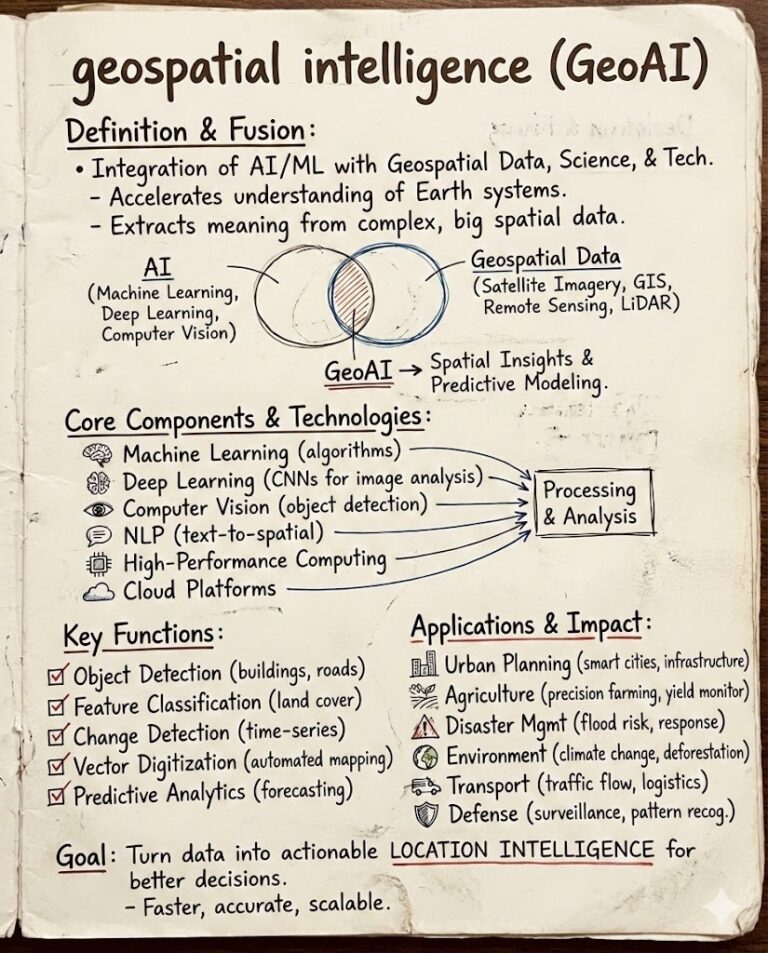 geospatial intelligence (GeoAI)
Definition & Fusion:
• Integration of AI/ML with Geospatial Data, Science, & Tech.
- Accelerates understanding of Earth systems.
- Extracts meaning from complex, big spatial data.
AI
(Machine Learning,
Deep Learning,
Computer Vision)
Geospatial Data
(Satellite Imagery, GIS,
Remote Sensing, LiDAR)
GeoAI → Spatial Insights &
Predictive Modeling.
Core Components & Technologies:
Machine Learning (algorithms)
Deep Learning (CNNs for image analysis)
Computer Vision (object detection)
NLP (text-to-spatial)
High-Performance Computing
Cloud Platforms
Processing
& Analysis
Key Functions:
Object Detection (buildings, roads)
Feature Classification (land cover)
Change Detection (time-series)
Vector Digitization (automated mapping)
Predictive Analytics (forecasting)
Applications & Impact:
Urban Planning (smart cities, infrastructure)
Agriculture (precision farming, yield monitor)
Disaster Mgmt (flood risk, response)
Environment (climate change, deforestation)
Transport (traffic flow, logistics)
Defense (surveillance, pattern recog.)
Goal: Turn data into actionable LOCATION INTELLIGENCE for
better decisions.
- Faster, accurate, scalable.